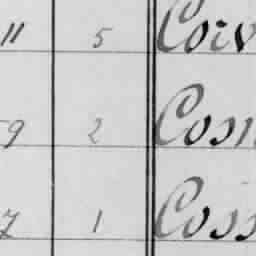 11 5 Coiv
9 2 Cosn
7 1 Coss